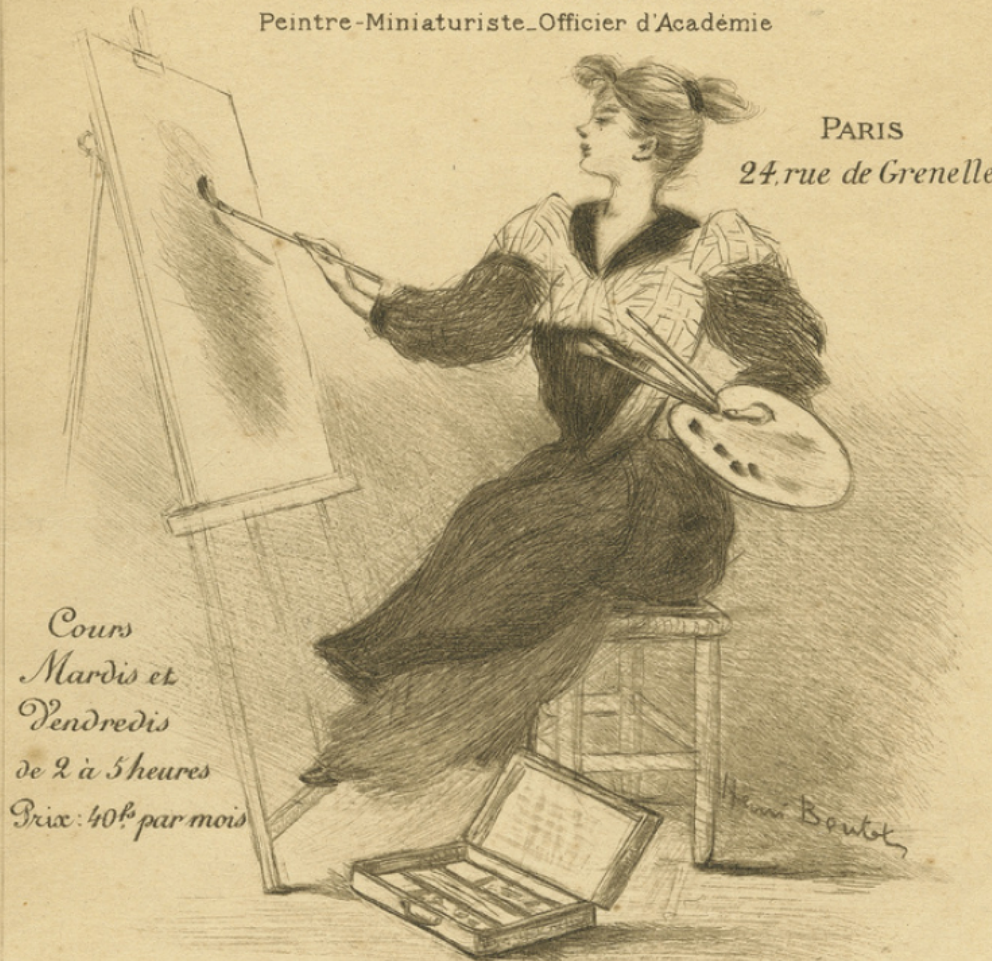 Peintre-Miniaturiste_Officier d'Académie
PARIS
24, rue de Grenelle
Cours
Mardis et
Vendredis
de 2 à 5 heures
Prix: 40fs par mois
Henri Boutet